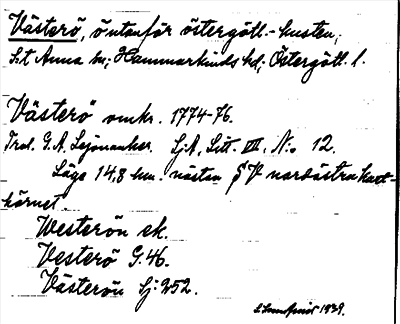 Västerö, ö utanför östergötl.-kusten,
S:t Anna sn; Hammarkinds hd; Östergötl. l.
Västerö omkr. 1774-76.
G.A. Lejonancker. Sj.A, Litt. VII, N:o 12.
Läge 14,8 km. nästan V nordöstra kart-
hörnet.
Westerön ek.
Vesterö G.46.
Västerön Sj: 252.
1939.